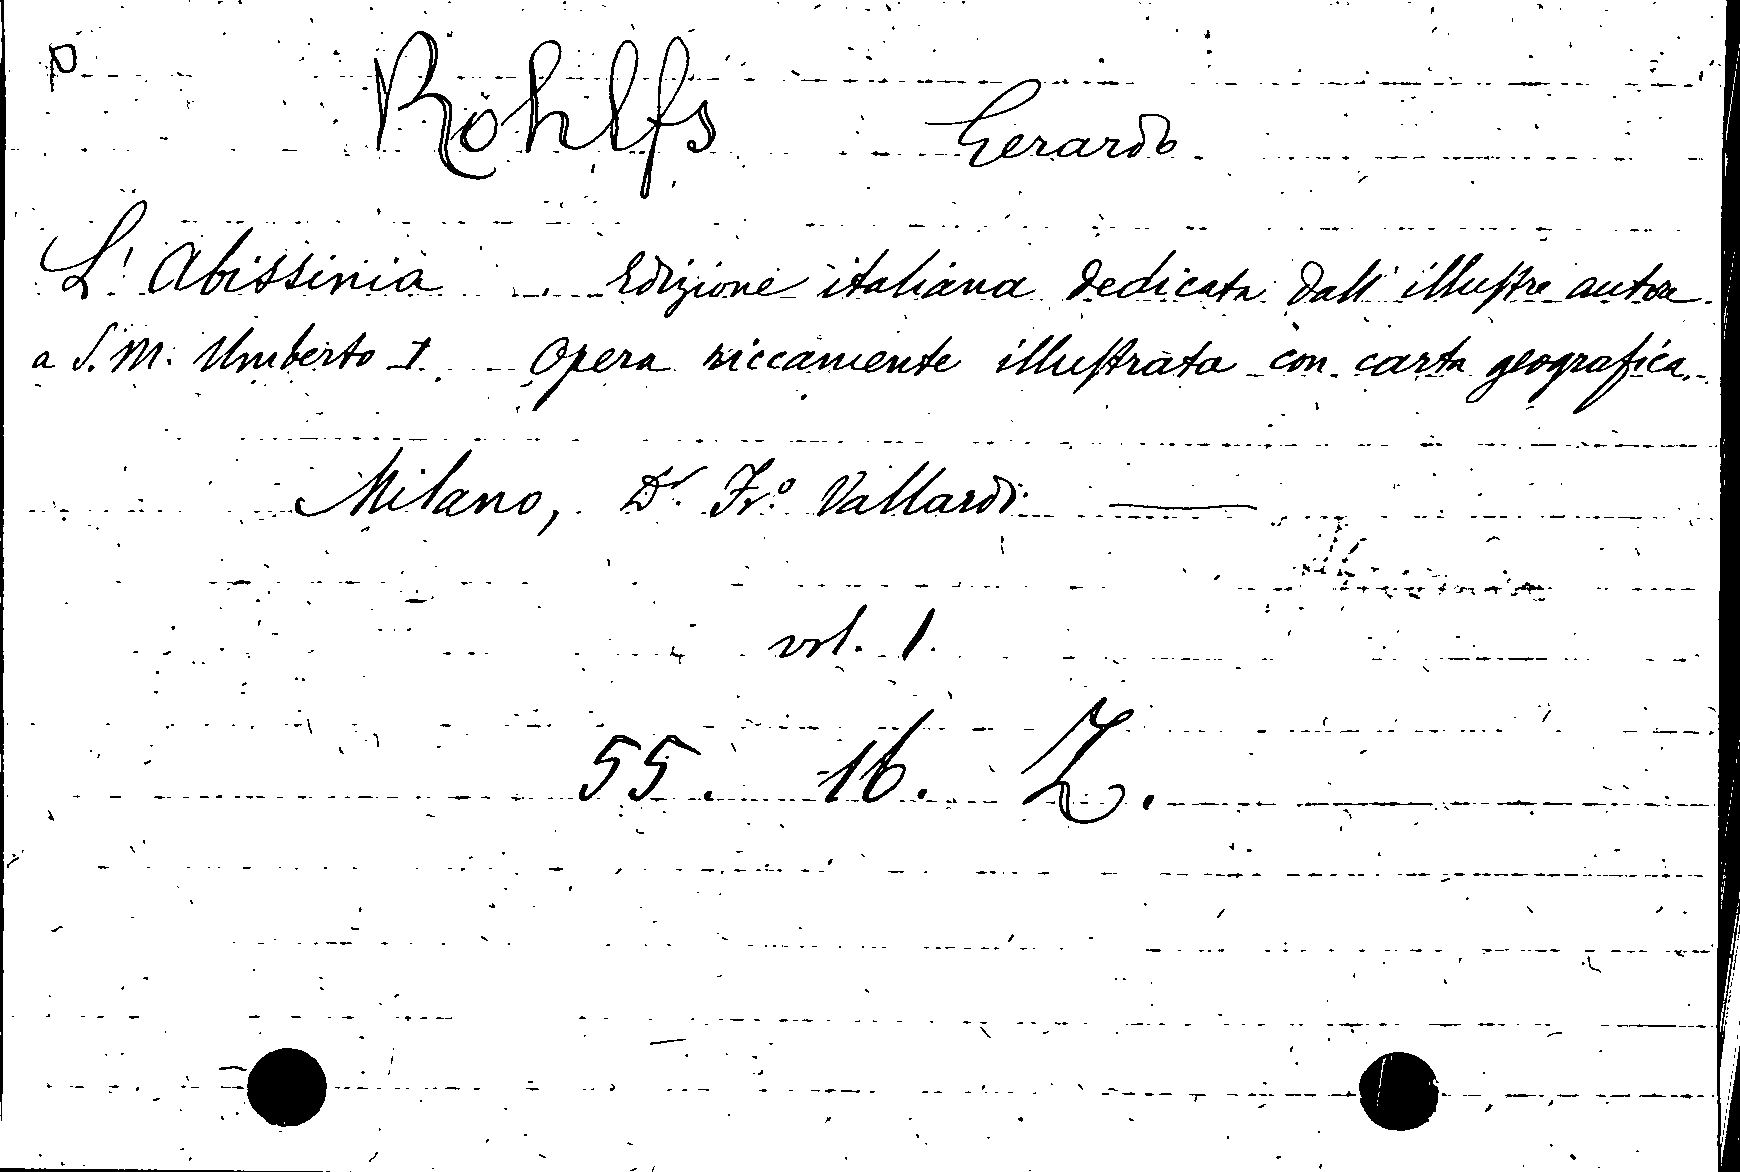 p
Rohlfs Gerardo
L'Abissinia . Edizione italiana dedicata dall'illustre autore
a S. M. Umberto I. Opera riccamente illustrata con carta geografica.
Milano, Dr. Fr.º Vallardi —
vol. 1.
55. 16. Z.